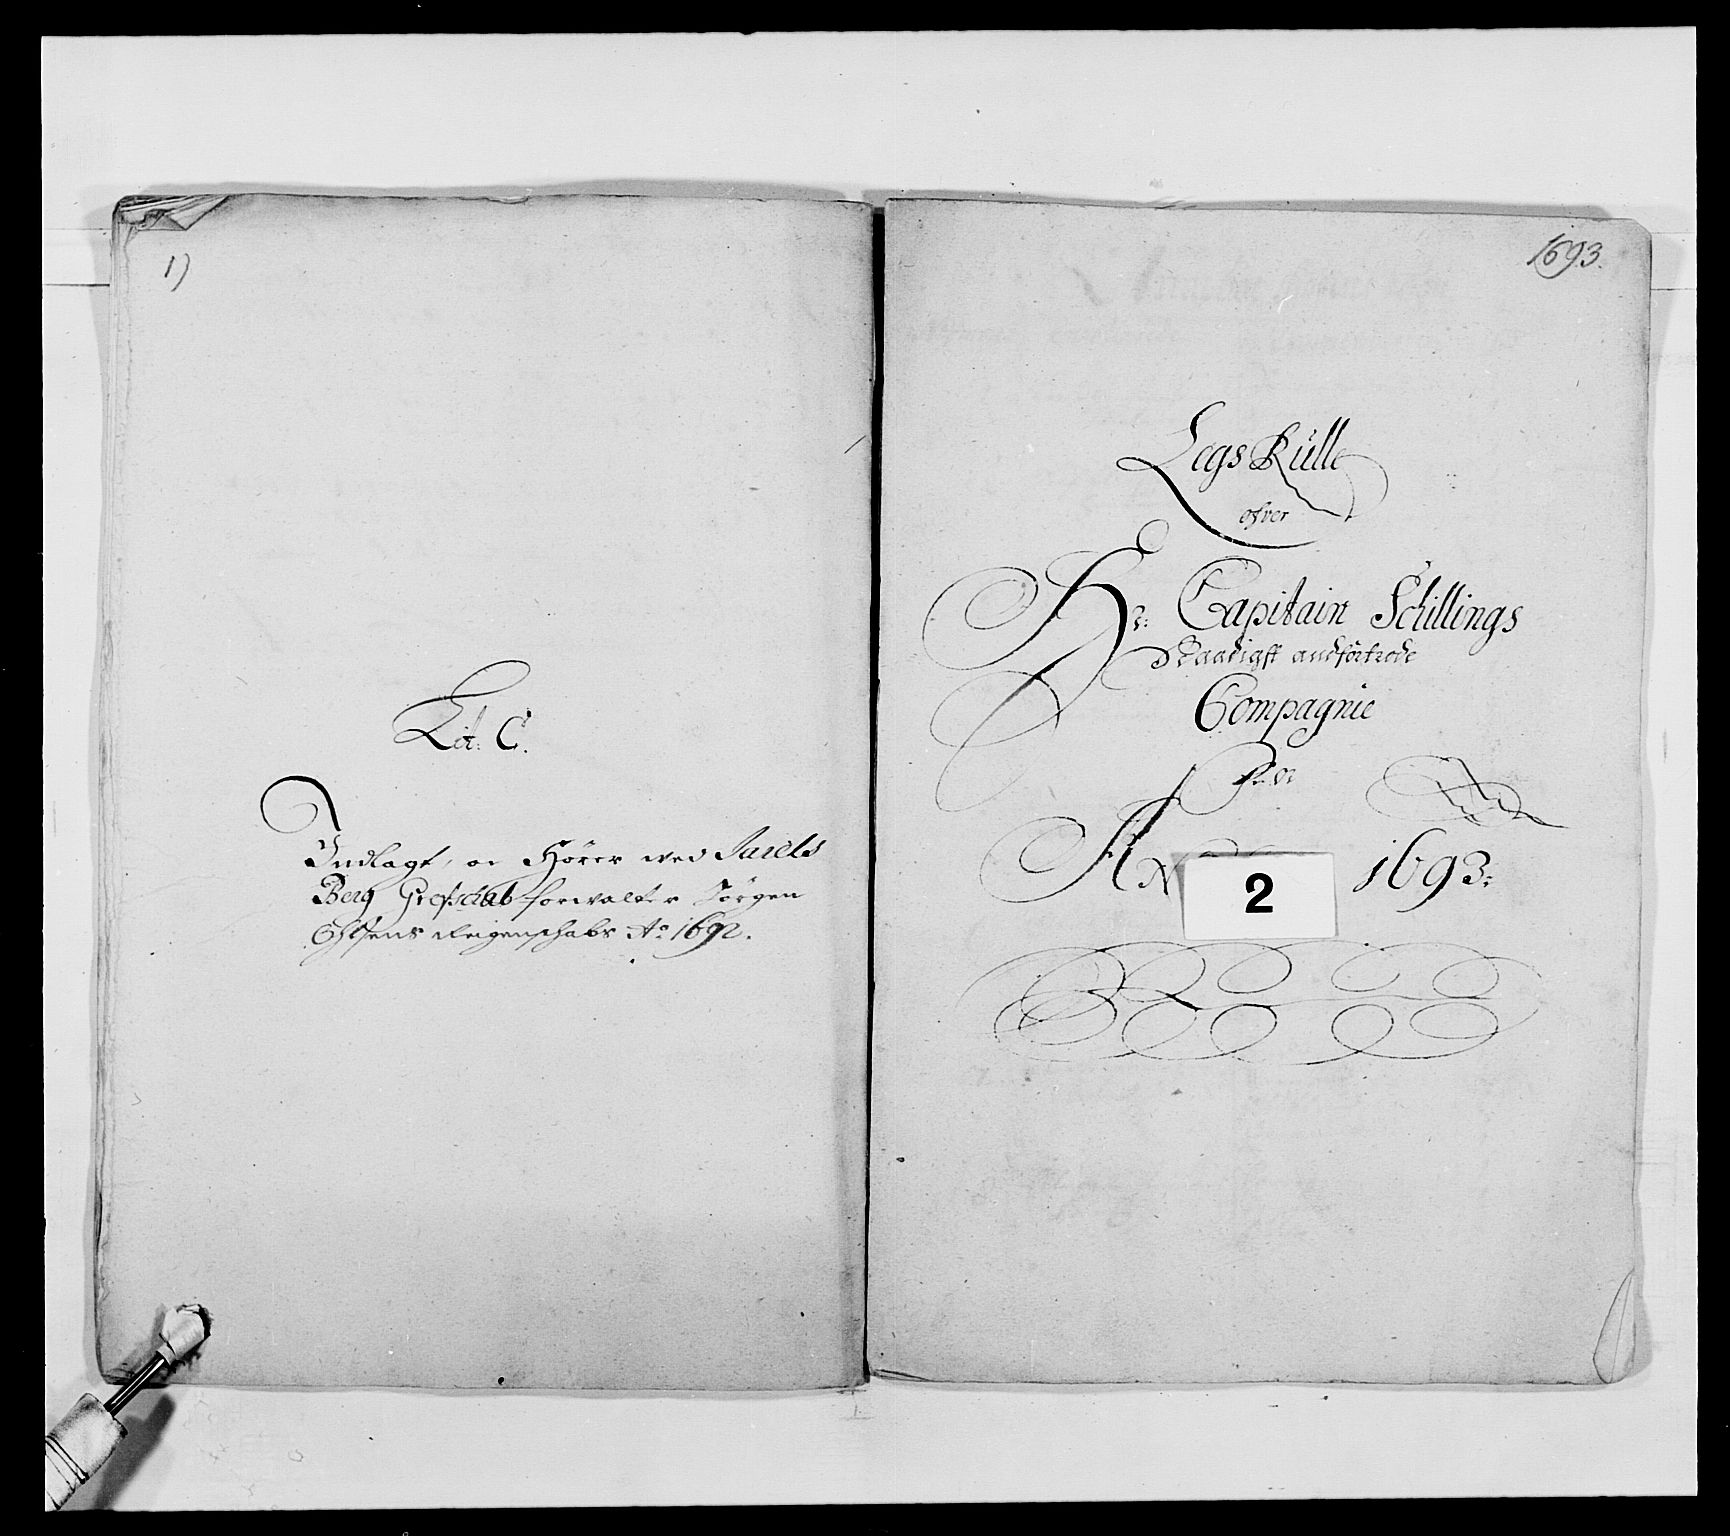 1)
Lit: C.
Indlagt, oc Hører ved Jarels
Berg Grefschab forwalter Jørgen
Ohlsens Reigenschabs Ao 1692.
1693.
Legs Rülle
ofver
Hr: Capitain Schillings
Naadigst andförtrode
Compagnie
Pro
2
1693: